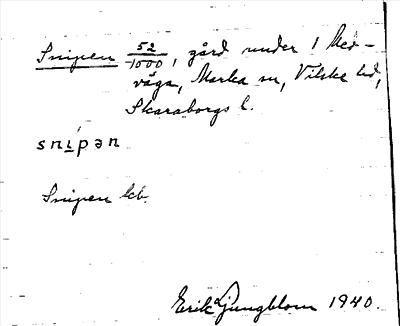 Snipen 52/1000, gård under 1 Med-
våga, Marka sn, Vilske hd,
Skaraborgs l.
snípən
Snipen kb.
Erik Ljungblom 1940.